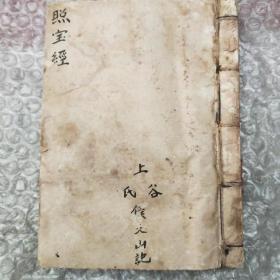 照宝經
上谷
氏俊文山記